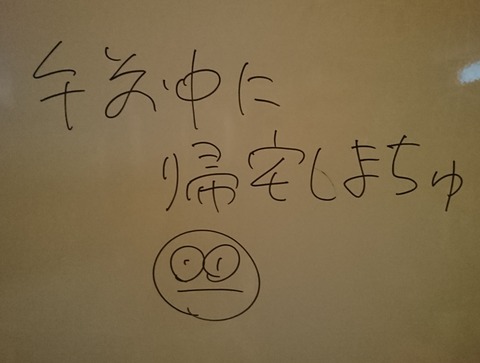 午前中に
帰宅しまちゅ